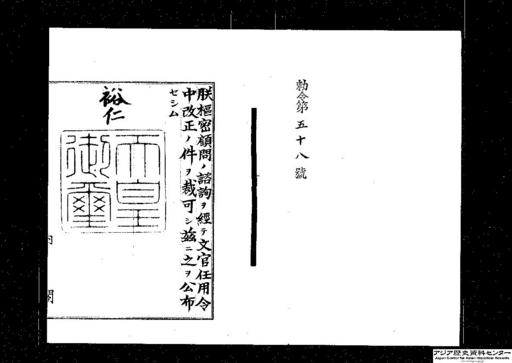 勅令第五十八號
朕樞密顧問ノ諮詢ヲ經テ文官任用令
中改正ノ件ヲ裁可シ茲ニ之ヲ公布
セシム
裕仁
天皇
御璽
内閣
アジア歴史資料センター
Japan Center for Asian Historical Records